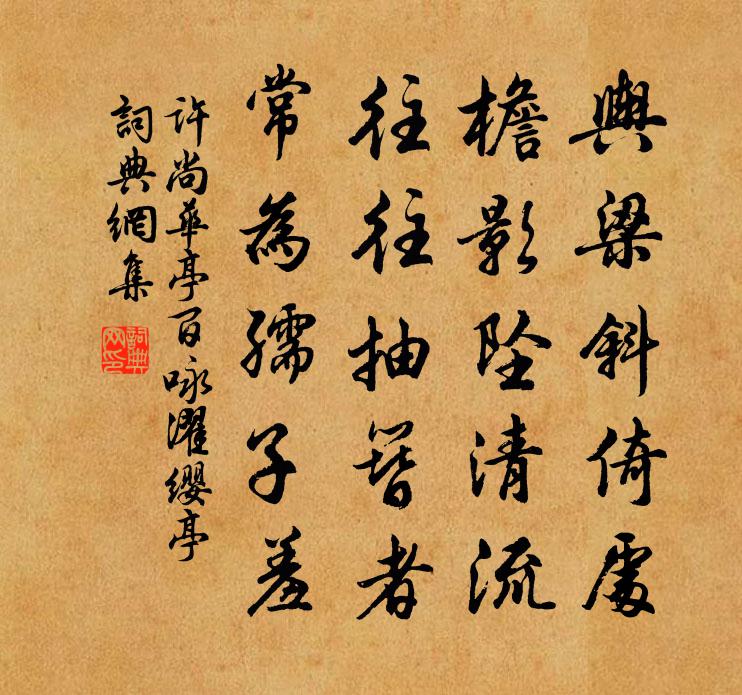 輿梁斜倚處
檐影墜清流
往往抽簪者
常為孺子羞
許尚華亭百咏濯纓亭
詞典網集
詞典網印